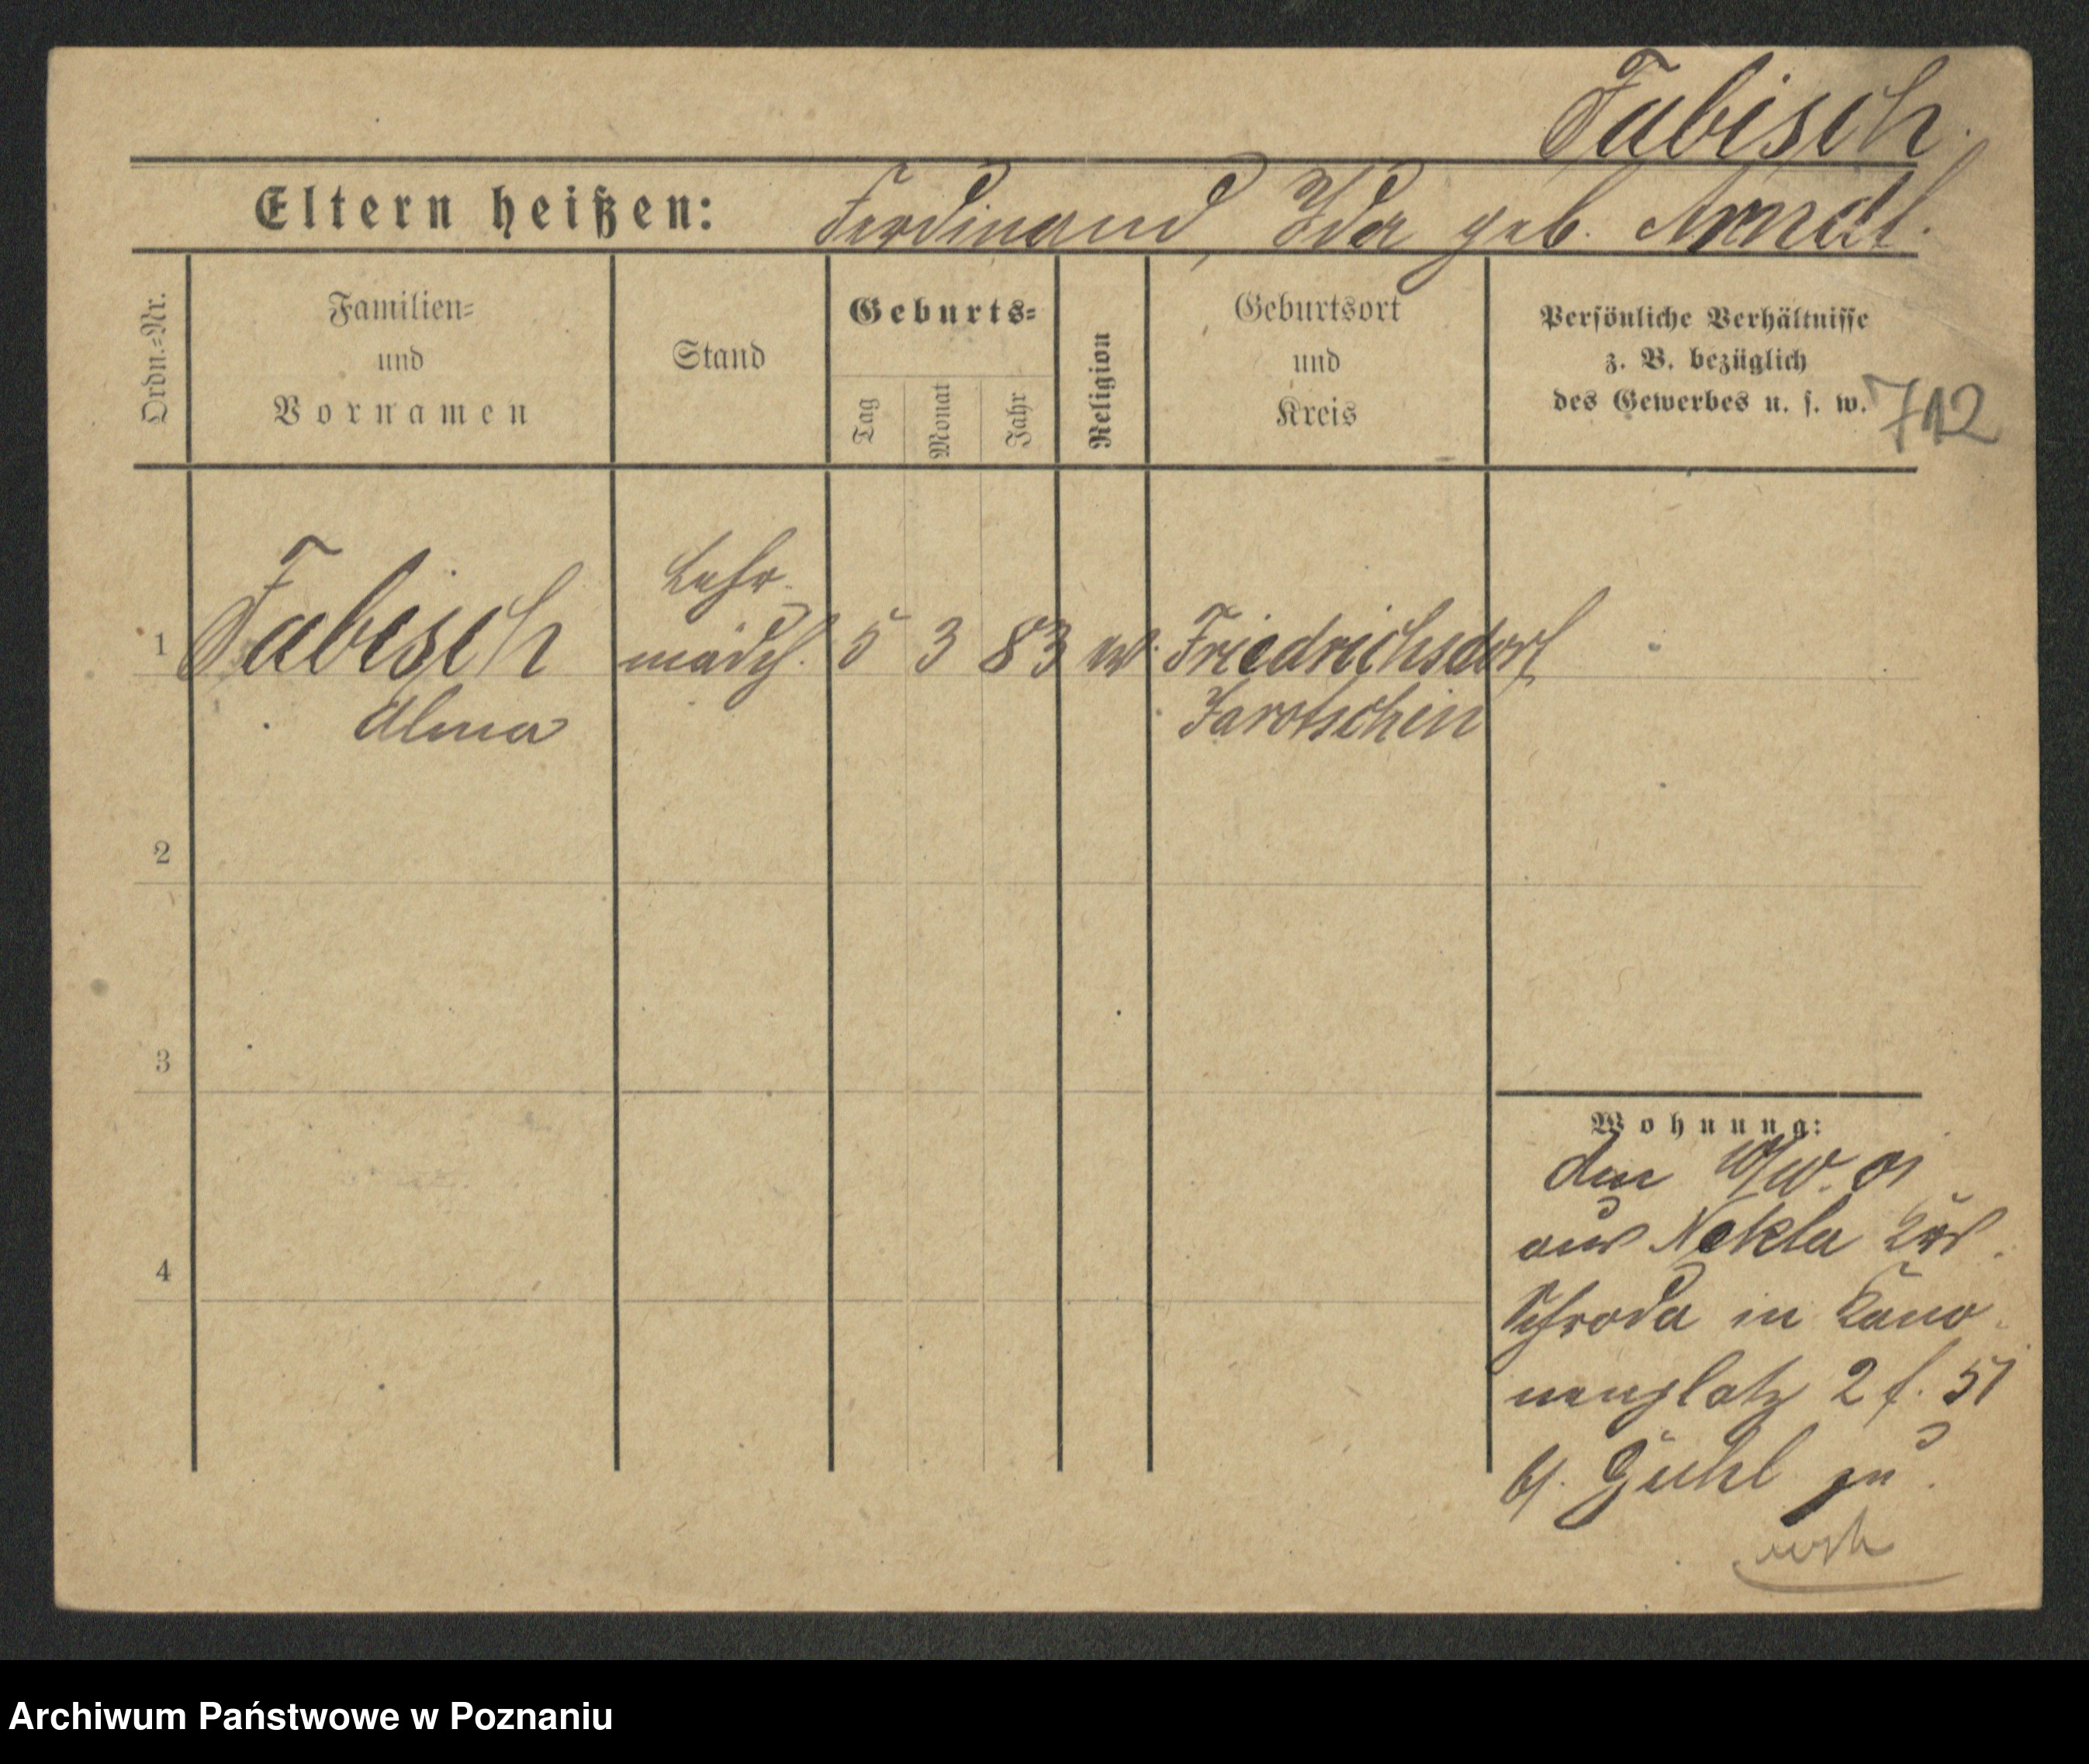 Fabisch.
Eltern heißen: Ferdinand, Ida geb. Arndt.
Ordn.=Nr.
Familien=
und
Vornamen
Stand
Geburts=
Tag
Monat
Jahr
Religion
Geburtsort
und
Kreis
Persönliche Verhältnisse
z. B. bezüglich
des Gewerbes u. s. w.
712
1 Fabisch Lehr-
mädch. 5 3 83 ev. Friedrichsdorf
Alma Jarotschin
2
3
4
Wohnung:
den 01
aus Nekla Krs.
Schroda in Kano-
nenplatz 2 b. 51
b/. Guhl zu.